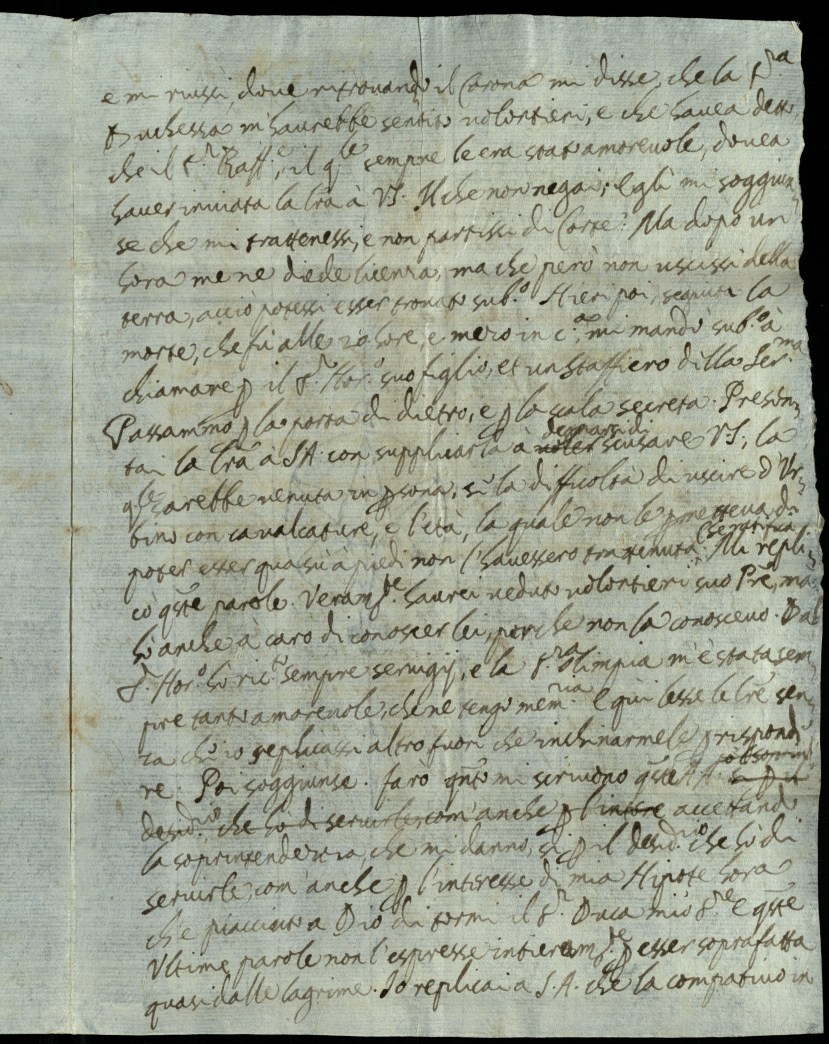 e mi riuscì, dove ritrovando il Corona mi disse, che la S.ra
Duchessa m'haurebbe sentito volontieri, e che havea detto
che il S.r Raff.e, il q.le sempre le era stato amorevole, dovea
haver inviata la lr̃a à VS. Il che non negai; Egli mi soggiun
se che mi trattenessi, e non partissi di Corte. Ma dopò un
hora me ne diede licenza, ma che però non uscissi della
terra, acciò potessi esser trovato sub.o Hieri poi, seguita la
morte, che fù alle 20 hore, e mezo in c.a mi mandò sub.o à
chiamare p il S.r Hor.o suo figlio, et un staffiero della Ser.ma
Passammo p la porta di dietro, e p la scala secreta. Presen
tai la lr̃a à SA. con supplicarla à degnarsi di scusare VS., la
q.le sarebbe venuta in psona, se la difficoltà di uscire d'Ur
bino con cavalcature, e l'età, la quale non le pmetteva di
poter esser quasù à piedi non l'havessero trattenuta. Mi repli
cò q̃ste parole. Veram.te haurei veduto volontieri suo Prẽ, ma
hò anche à caro di conoscer lei, perche non la conoscevo. Dal
S.r Hor.o hò ric.to sempre servigij, e la S.ra Olimpia m'è stata sem
pre tanto amorevole, che ne tengo mem.ria E quì lesse le lr̃e sen
za ch'io replicassi altro fuori che inchinarmele p risponde
re. Poi soggiunse. farò q̃nto mi scrivono q̃ste AA.
desid.rio che hò di servirle, com'anche p l'intere accettando
la soprintendenza, che mi danno, sì p il desid.rio che hò di
servirle, com'anche p l'interesse di mia Nipote hora
ch'è piacciuto a Dio di tormi il S.r Duca mio S.re E q̃ste
Ultime parole non l'espresse intieram.te p esser soprafatta
quasi dalle lagrime. Io replicai a S.A. che la compativo in